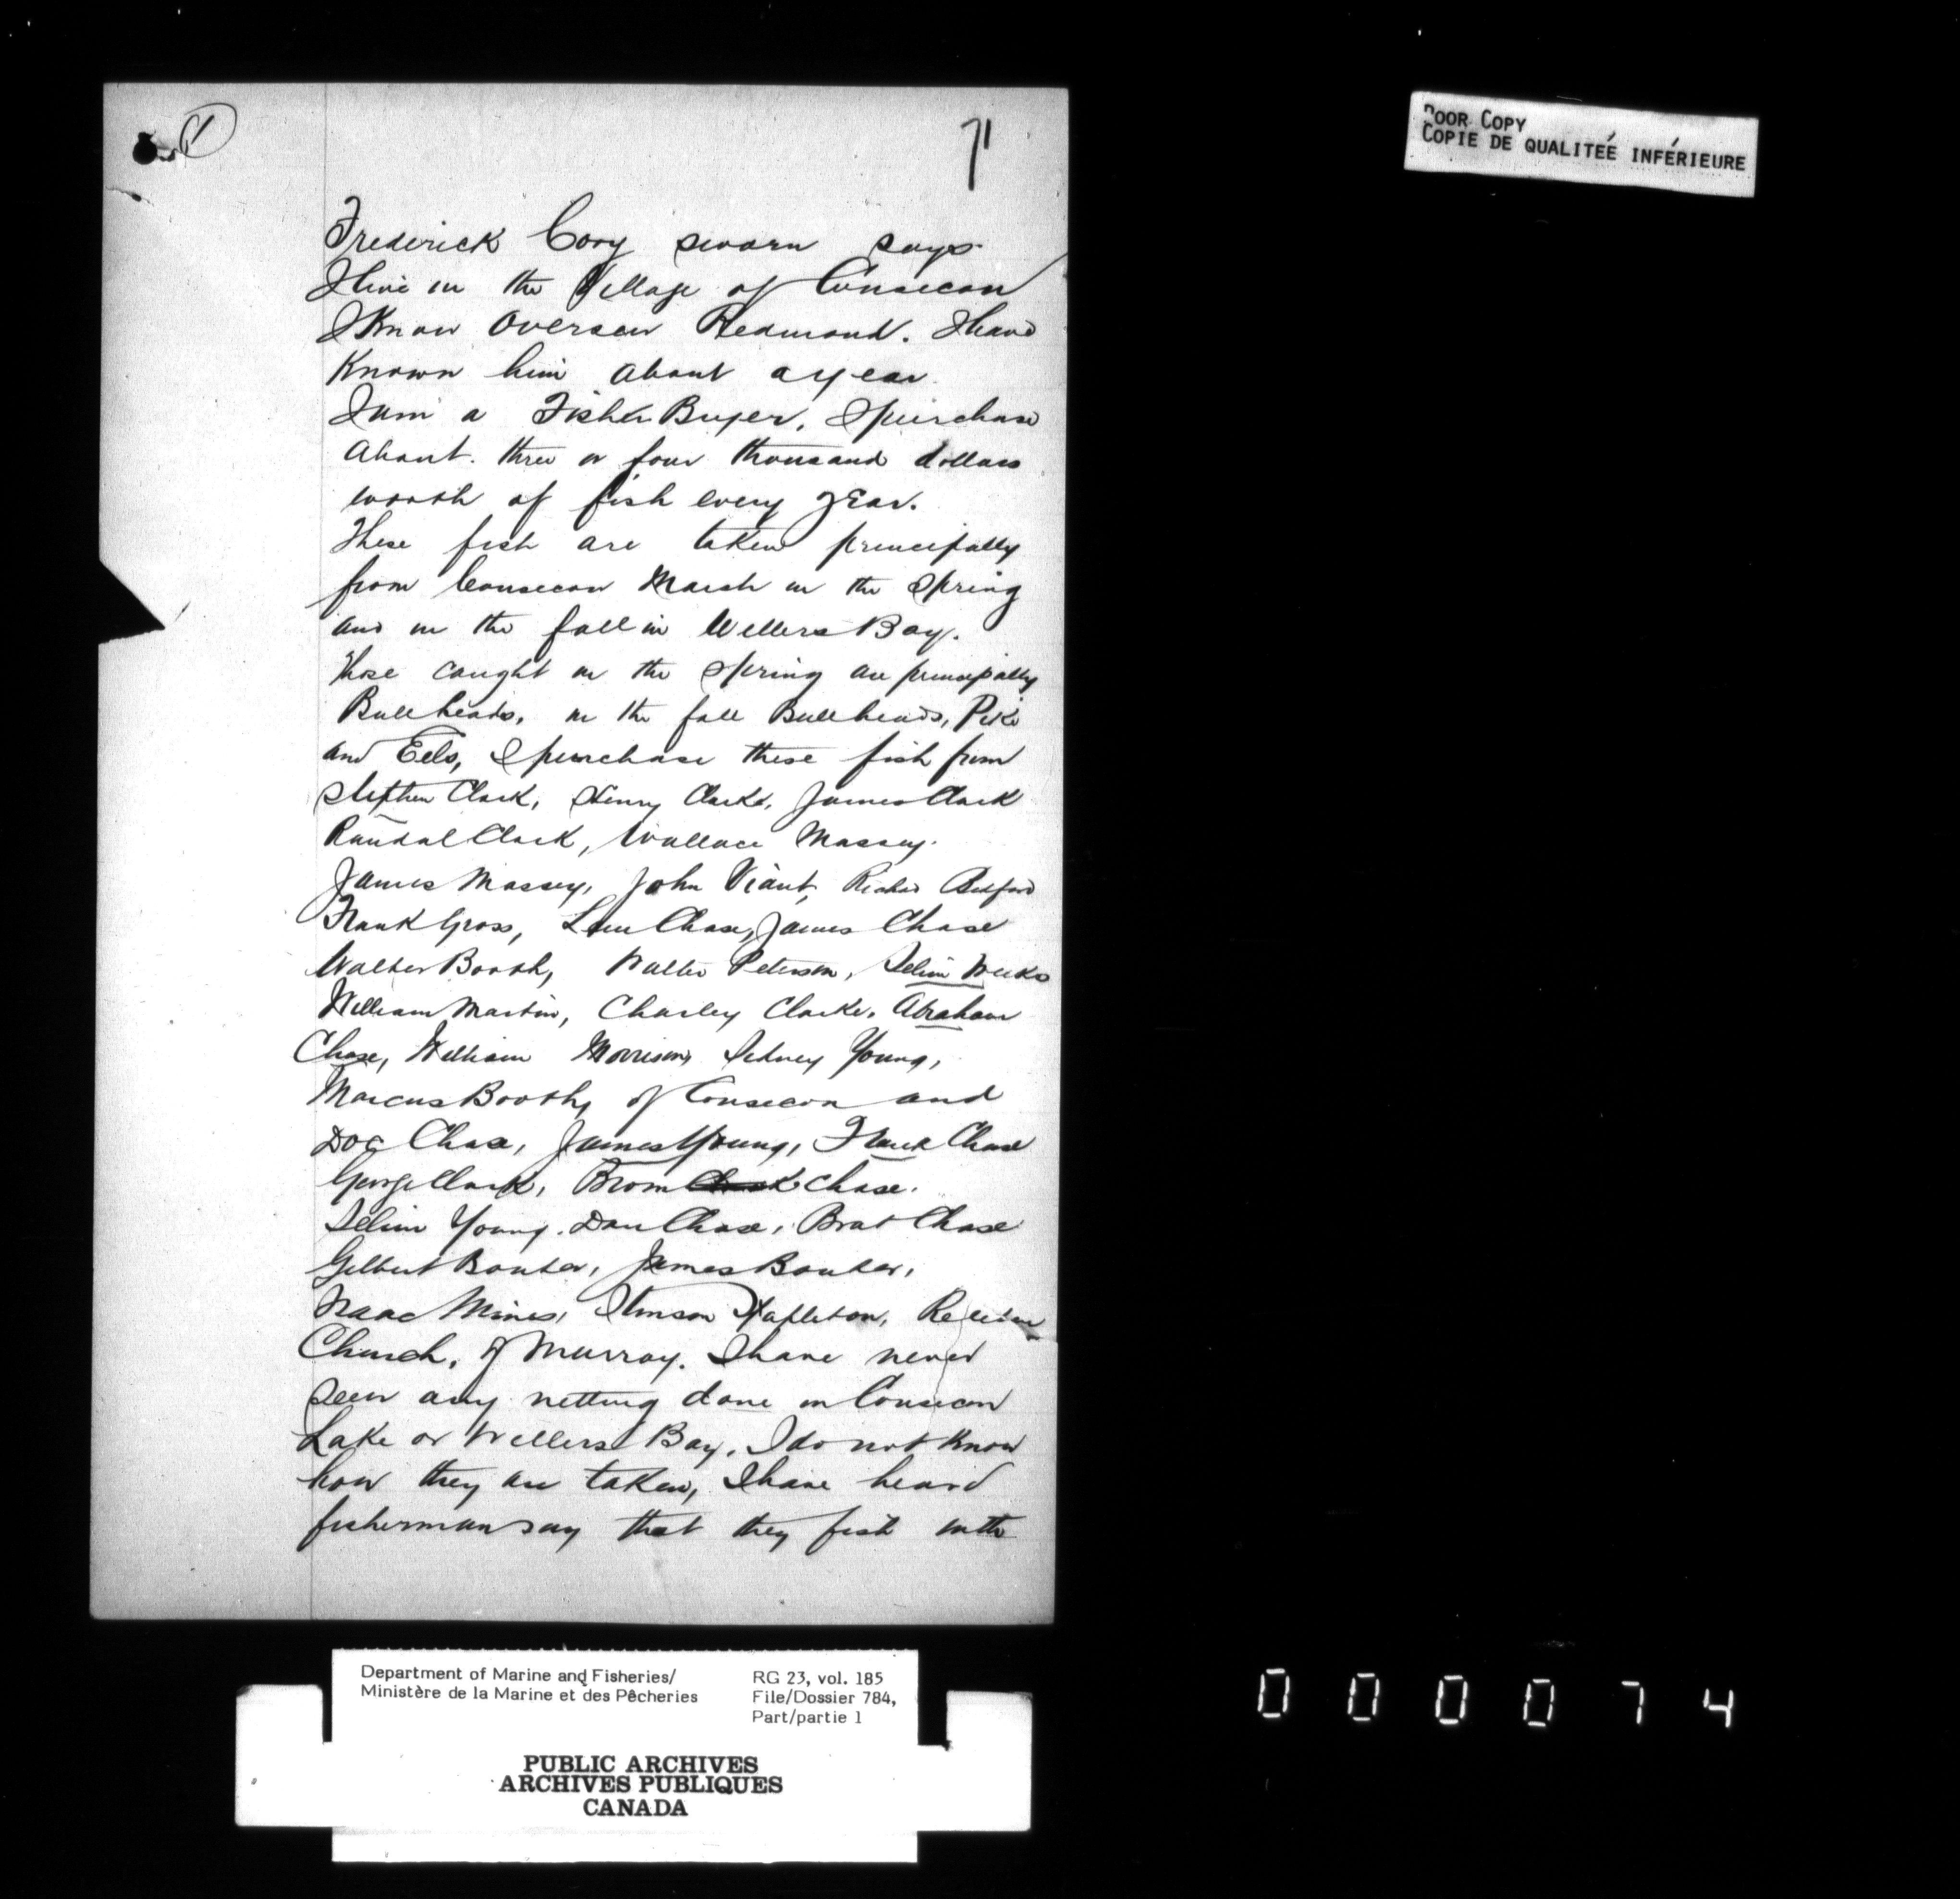 71
POOR COPY
COPIE DE QUALITEÉ INFÉRIEURE
Frederick Cory sworn says
I live in the Village of Consecon
I Know Overseer Redmond. I have
Known him about a year.
I am a Fisher Buyer, I purchase
about. three or four thousand dollars
worth of fish every year.
These fish are taken principally
from Consecon Marsh in the Spring
and in the fall in Wellers Bay.
Those caught in the Spring are principally
Bullheads, in the fall Bullheads, Pike
and Eels, I purchase these fish from
Stephen Clark, Henry Clarke, James Clark
Randal Clark, Wallace Massey.
James Massey, John Viant, Richard Bedford
Frank Gross, Chase, James Chase
Walter Booth, Walter Peterson, Selim Weeks
William Martin, Charley Clarke, Abraham
Chase, William Morrison, Sidney Young,
Marcus Booth, of Consecon and
Doc Chase, James Young, Frank Chase
George Clark, Brom Chase.
Selim Young. Dan Chase, Brat Chase
Gilbert Bonter, James Bonter,
Isaac Mines, Stinson Stapleton,
Church, of Murray. I have never
seen any netting done in Consecon
Lake or Wellers Bay. I do not Know
how they are taken, I have heard
fisherman say that they fish with
Department of Marine and Fisheries/
Ministère de la Marine et des Pêcheries
RG 23, vol. 185
File/Dossier 784,
Part/partie 1
PUBLIC ARCHIVES
ARCHIVES PUBLIQUES
CANADA
000074